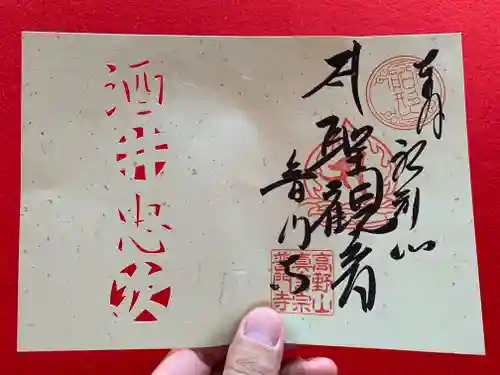 奉拝
船形山
聖観音
普門寺
高野山
真言宗
普門寺
酒井忠次